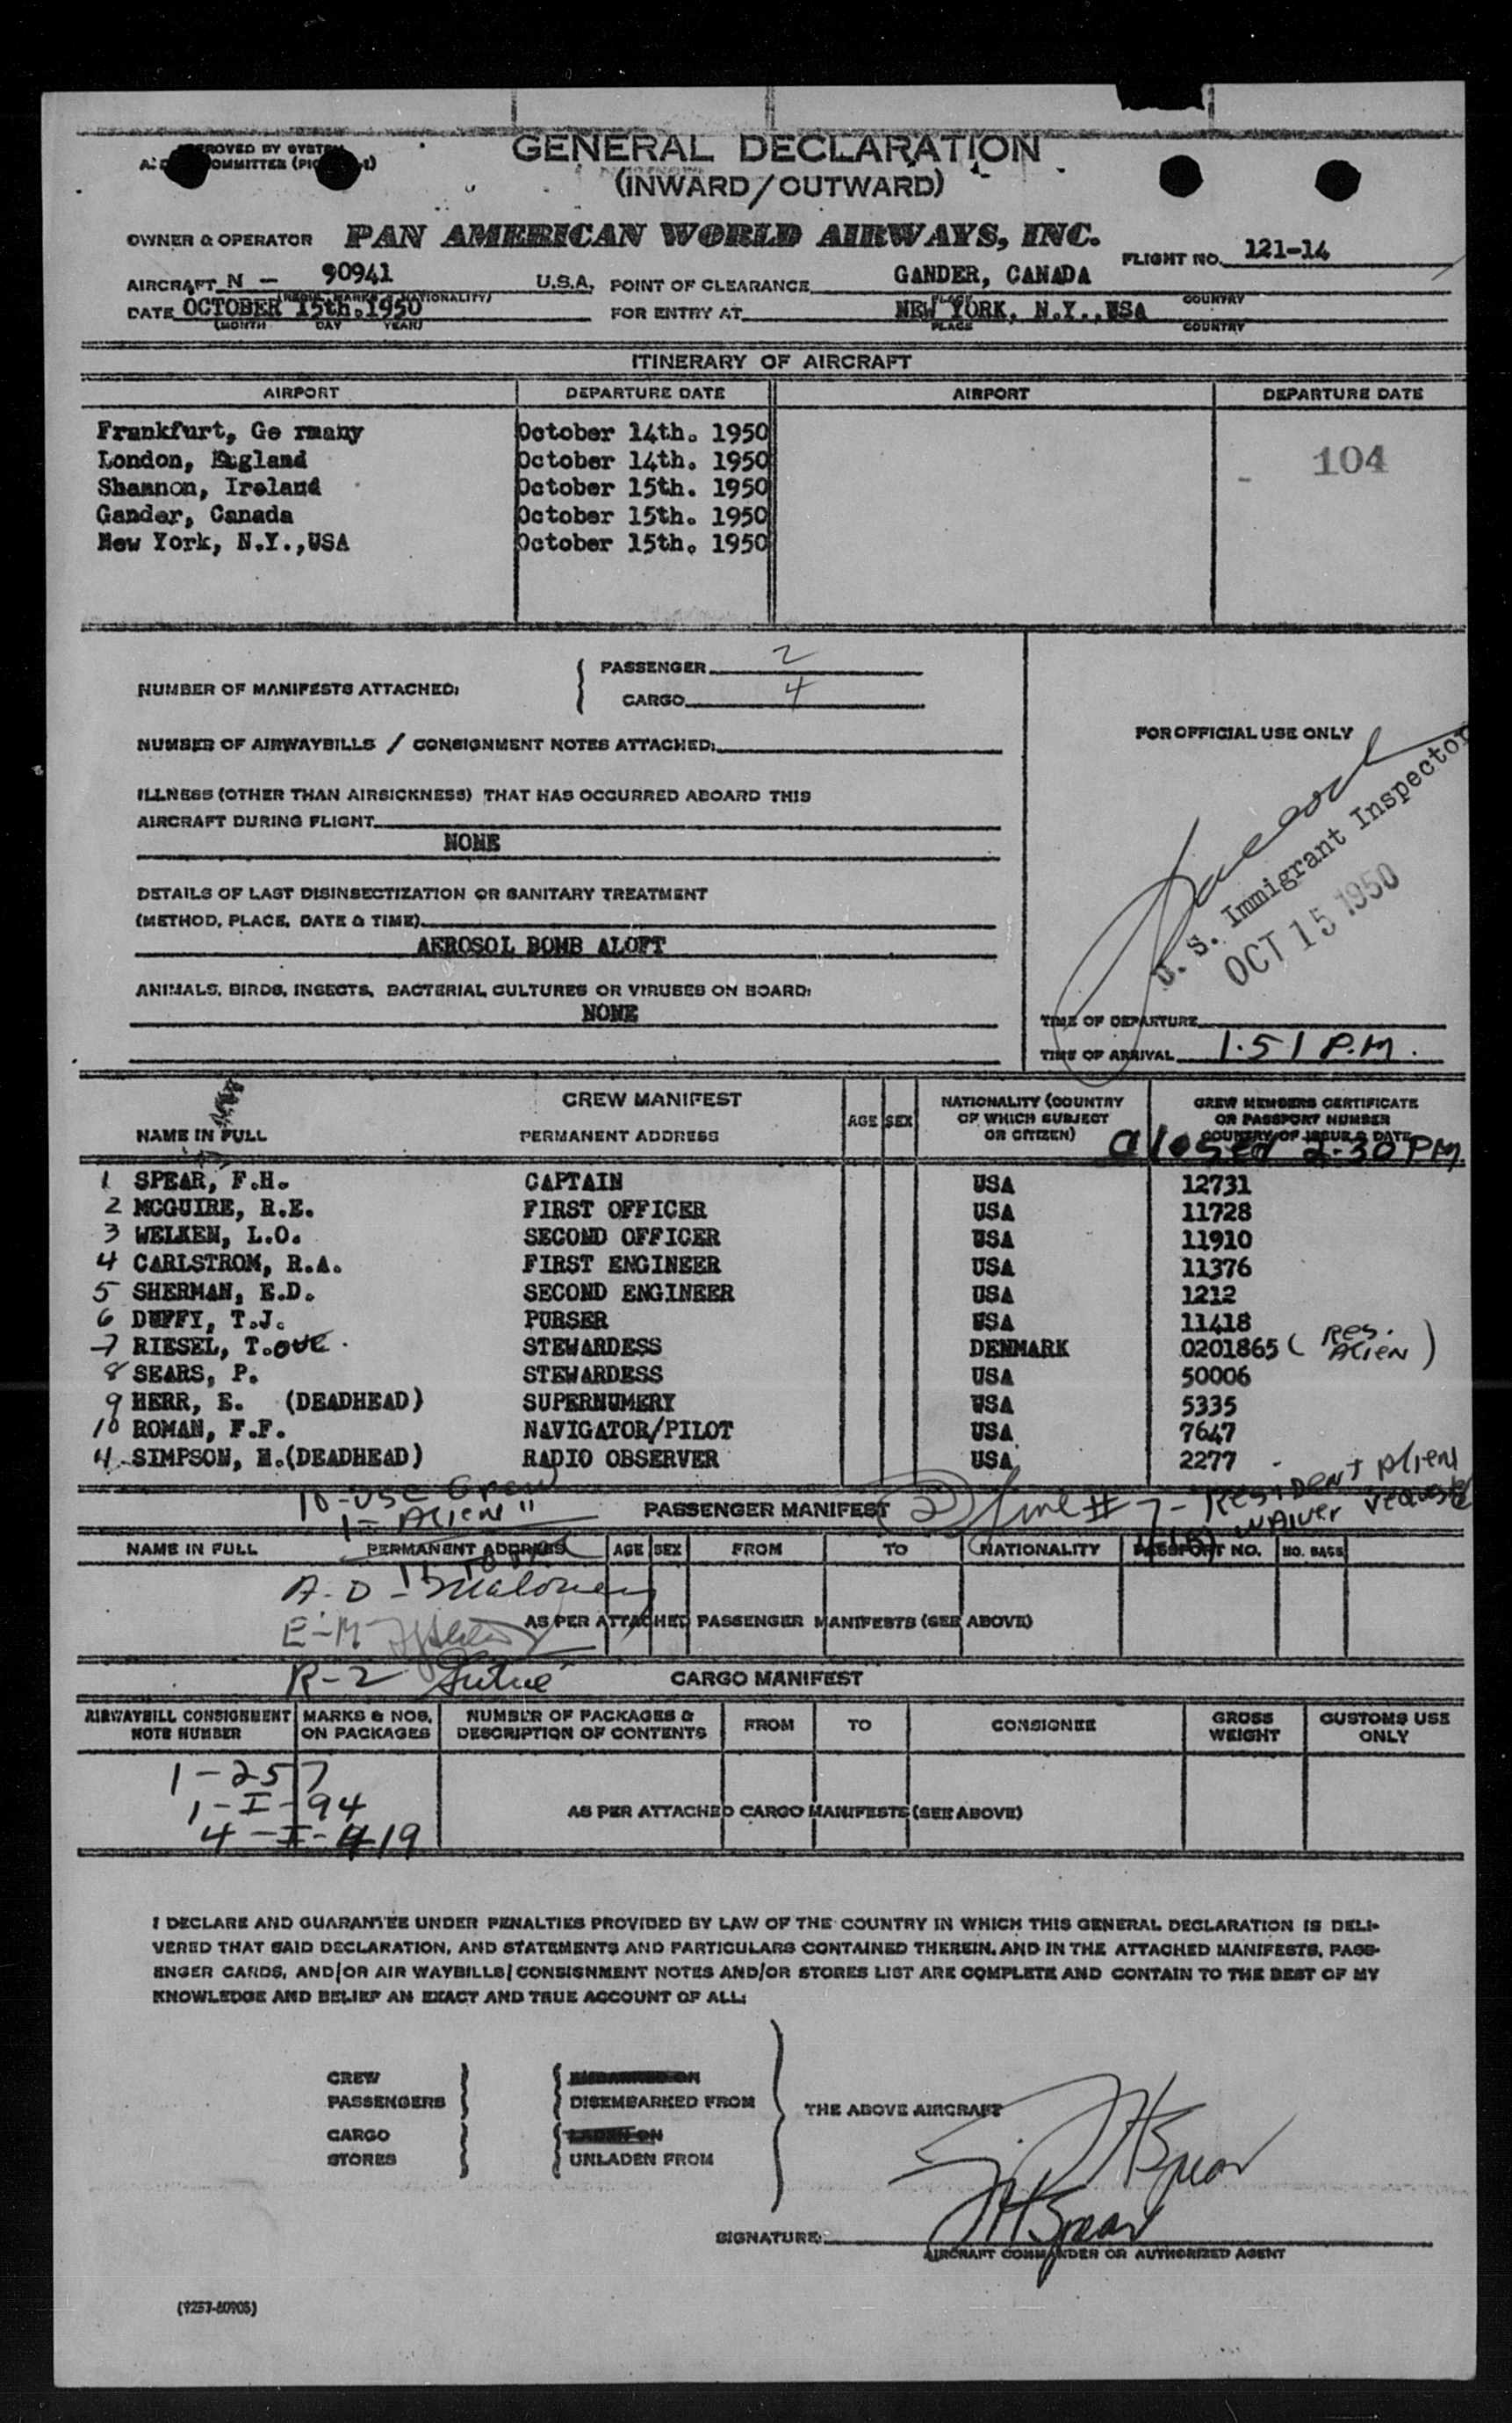 GENERAL DECLARATION
(INWARD/OUTWARD)
OWNER & OPERATOR PAN AMERICAN WORLD AIRWAYS, INC.
FLIGHT NO. 121-14
AIRCRAFT N - 90941 U.S.A. POINT OF CLEARANCE GANDER, CANADA
DATE OCTOBER 15th.1950 FOR ENTRY AT NEW YORK, N.Y.,USA
(MONTH DAY YEAR) PLACE COUNTRY
ITINERARY OF AIRCRAFT
AIRPORT DEPARTURE DATE AIRPORT DEPARTURE DATE
Frankfurt, Ge rmany October 14th. 1950
London, England October 14th. 1950 104
Shannon, Ireland October 15th. 1950
Gander, Canada October 15th. 1950
New York, N.Y.,USA October 15th. 1950
NUMBER OF MANIFESTS ATTACHED: PASSENGER 2
CARGO 4
NUMBER OF AIRWAYBILLS / CONSIGNMENT NOTES ATTACHED:
FOR OFFICIAL USE ONLY
ILLNESS (OTHER THAN AIRSICKNESS) THAT HAS OCCURRED ABOARD THIS
AIRCRAFT DURING FLIGHT
NONE
U. S. Immigrant Inspector
OCT 15 1950
DETAILS OF LAST DISINSECTIZATION OR SANITARY TREATMENT
(METHOD, PLACE, DATE & TIME)
AEROSOL BOMB ALOFT
ANIMALS, BIRDS, INSECTS, BACTERIAL CULTURES OR VIRUSES ON BOARD:
NONE
TIME OF DEPARTURE
TIME OF ARRIVAL 1.51 P.M.
CREW MANIFEST
NAME IN FULL PERMANENT ADDRESS AGE SEX NATIONALITY (COUNTRY OF WHICH SUBJECT OR CITIZEN) CREW MEMBERS CERTIFICATE OR PASSPORT NUMBER COUNTRY OF ISSUE & DATE
Closed 2-30 PM
1 SPEAR, F.H. CAPTAIN USA 12731
2 MCGUIRE, R.E. FIRST OFFICER USA 11728
3 WELKEN, L.O. SECOND OFFICER USA 11910
4 CARLSTROM, R.A. FIRST ENGINEER USA 11376
5 SHERMAN, E.D. SECOND ENGINEER USA 1212
6 DUFFY, T.J. PURSER USA 11418
7 RIESEL, T.ove. STEWARDESS DENMARK 0201865 (Res. Alien)
8 SEARS, P. STEWARDESS USA 50006
9 HERR, E. (DEADHEAD) SUPERNUMERY USA 5335
10 ROMAN, F.F. NAVIGATOR/PILOT USA 7647
11 SIMPSON, H.(DEADHEAD) RADIO OBSERVER USA 2277
10-USC Crew
1- Alien "
PASSENGER MANIFEST
Line # 7 - Resident Alien
Waiver requested
NAME IN FULL PERMANENT ADDRESS AGE SEX FROM TO NATIONALITY PASSPORT NO. NO. BAGS
A.D - Maloney
AS PER ATTACHED PASSENGER MANIFESTS (SEE ABOVE)
E-M
R-2
CARGO MANIFEST
AIRWAYBILL CONSIGNMENT NOTE NUMBER MARKS & NOS. ON PACKAGES NUMBER OF PACKAGES & DESCRIPTION OF CONTENTS FROM TO CONSIGNEE GROSS WEIGHT CUSTOMS USE ONLY
1-257
1-I-94
4-I-419
AS PER ATTACHED CARGO MANIFESTS (SEE ABOVE)
I DECLARE AND GUARANTEE UNDER PENALTIES PROVIDED BY LAW OF THE COUNTRY IN WHICH THIS GENERAL DECLARATION IS DELI-
VERED THAT SAID DECLARATION, AND STATEMENTS AND PARTICULARS CONTAINED THEREIN, AND IN THE ATTACHED MANIFESTS, PASS-
ENGER CARDS, AND/OR AIR WAYBILLS/CONSIGNMENT NOTES AND/OR STORES LIST ARE COMPLETE AND CONTAIN TO THE BEST OF MY
KNOWLEDGE AND BELIEF AN EXACT AND TRUE ACCOUNT OF ALL:
CREW EMBARKED ON
PASSENGERS DISEMBARKED FROM THE ABOVE AIRCRAFT
CARGO LADEN ON
STORES UNLADEN FROM
SIGNATURE: FHSpear
AIRCRAFT COMMANDER OR AUTHORIZED AGENT
(9257-80905)